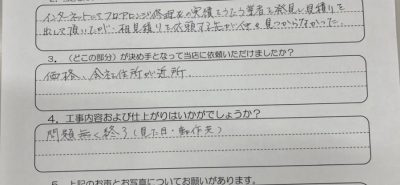 インターネットでフロアヒンジ修理の実績をうたう業者を発見し見積りを
出して頂いたが、相見積りを依頼する先が他に見つからなかった。
3．（どこの部分）が決め手となって当店に依頼いただけましたか？
価格、会社住所が近所。
4．工事内容および仕上がりはいかがでしょうか？
問題無く終了（見た目・動作共）
5．上記のお声とお写真についてお願いがあります。